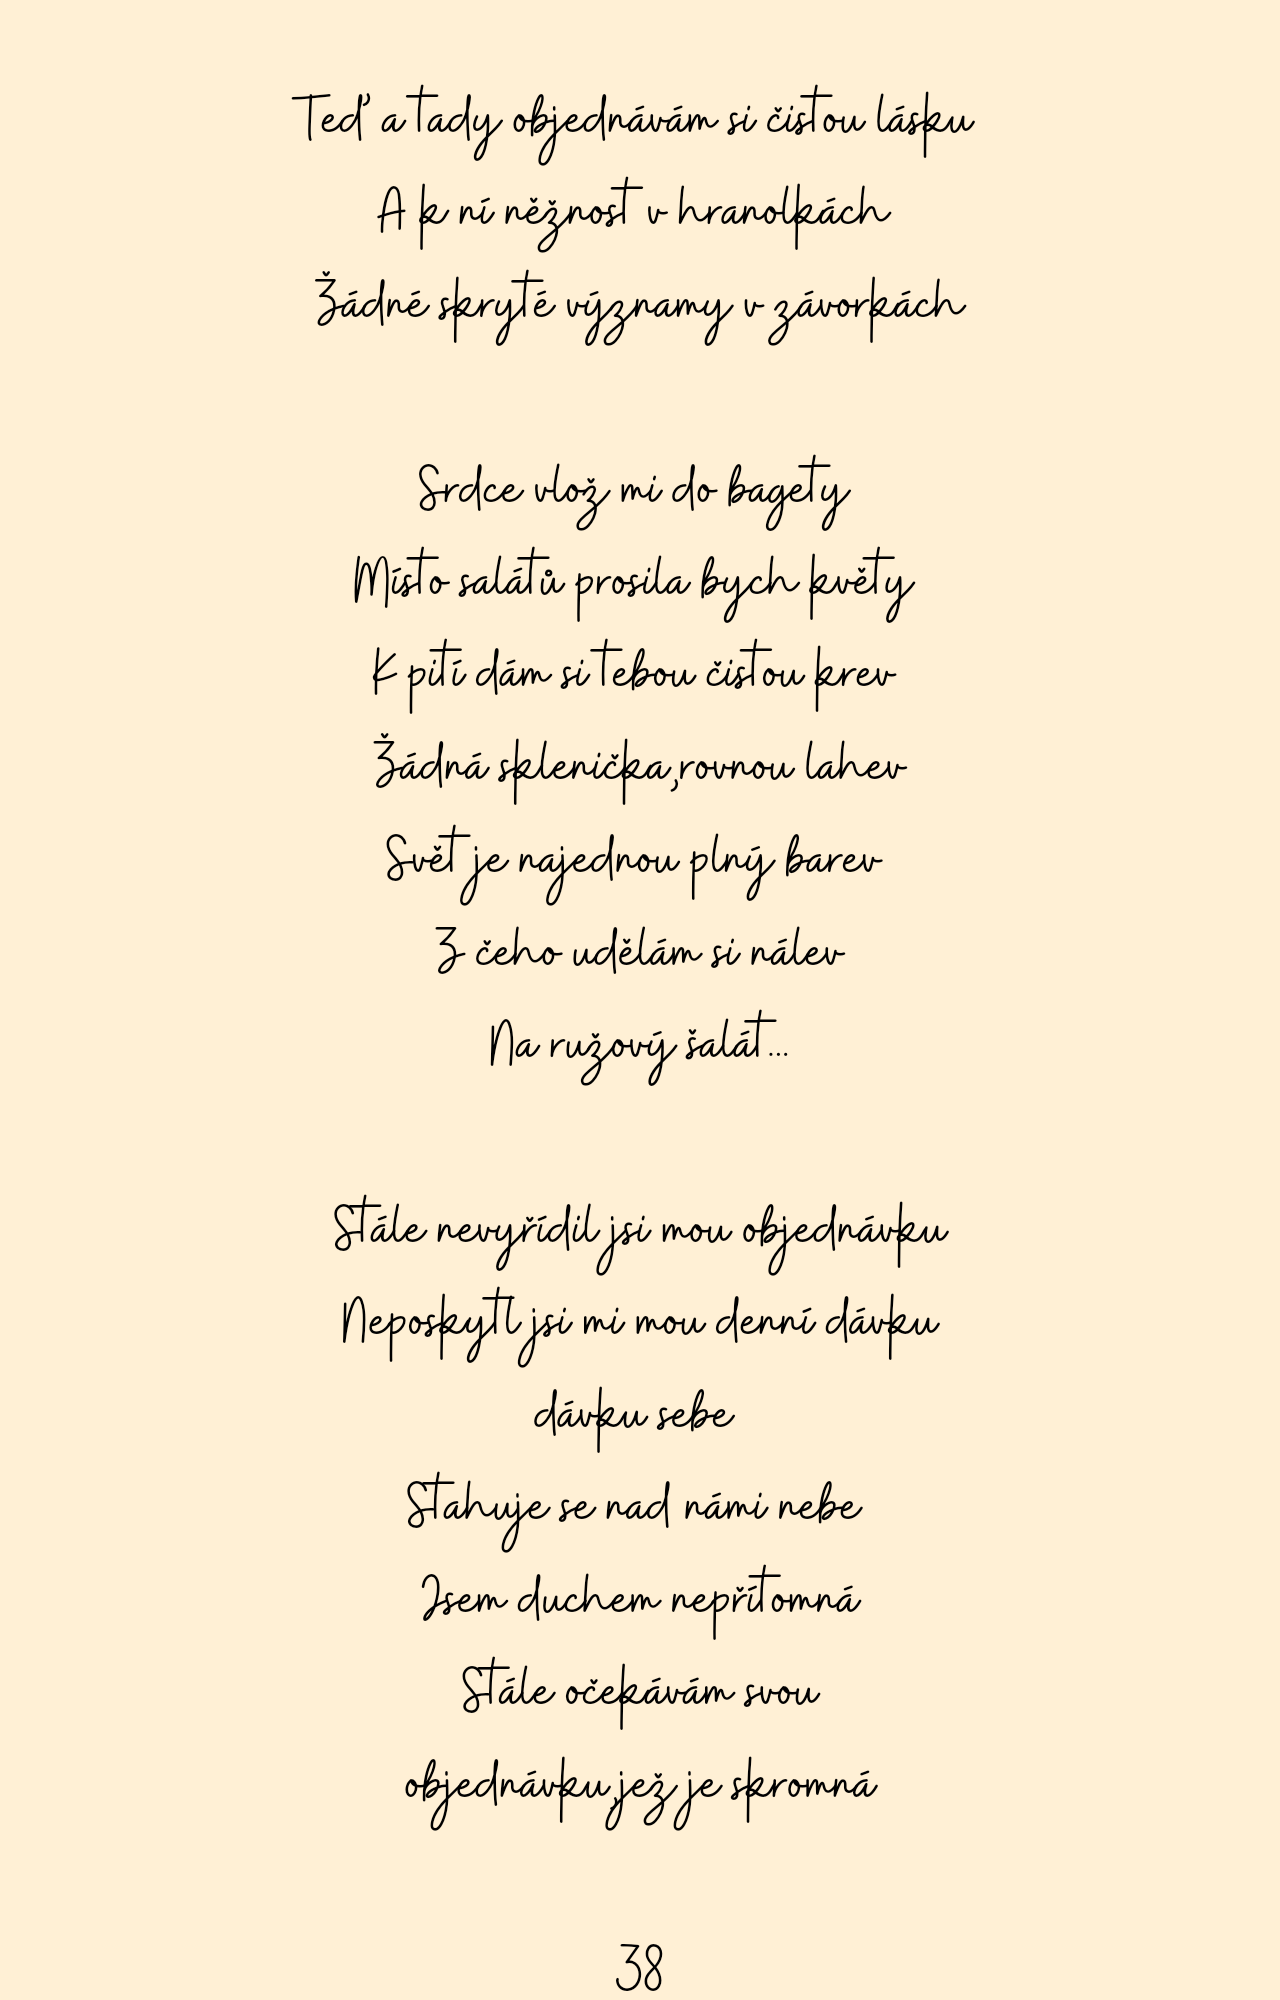 Teď a tady objednávám si čistou lásku
A k ní něžnost v hranolkách
Žádné skryté významy v závorkách
Srdce vlož mi do bagety
Místo salátů prosila bych květy
K pití dám si tebou čistou krev
Žádná sklenička,rovnou lahev
Svět je najednou plný barev
Z čeho udělám si nálev
Na ružový šalát...
Stále nevyřídil jsi mou objednávku
Neposkytl jsi mi mou denní dávku
dávku sebe
Stahuje se nad námi nebe
Jsem duchem nepřítomná
Stále očekávám svou
objednávku,jež je skromná
38